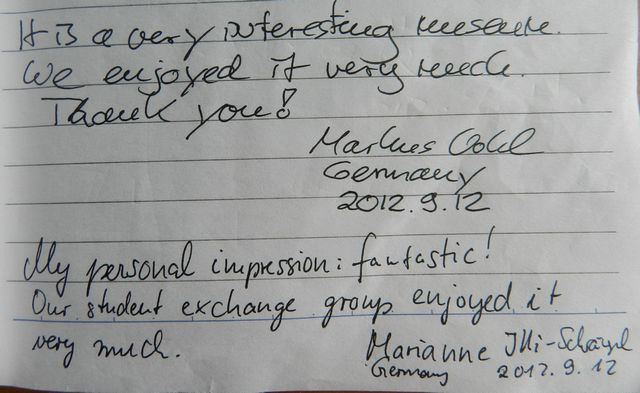 It is a very interesting museum.
We enjoyed it very much.
Thank you!
Markus
Germany
2012.9.12
My personal impression: fantastic!
Our student exchange group enjoyed it
very much.
Marianne
Germany 2012.9.12